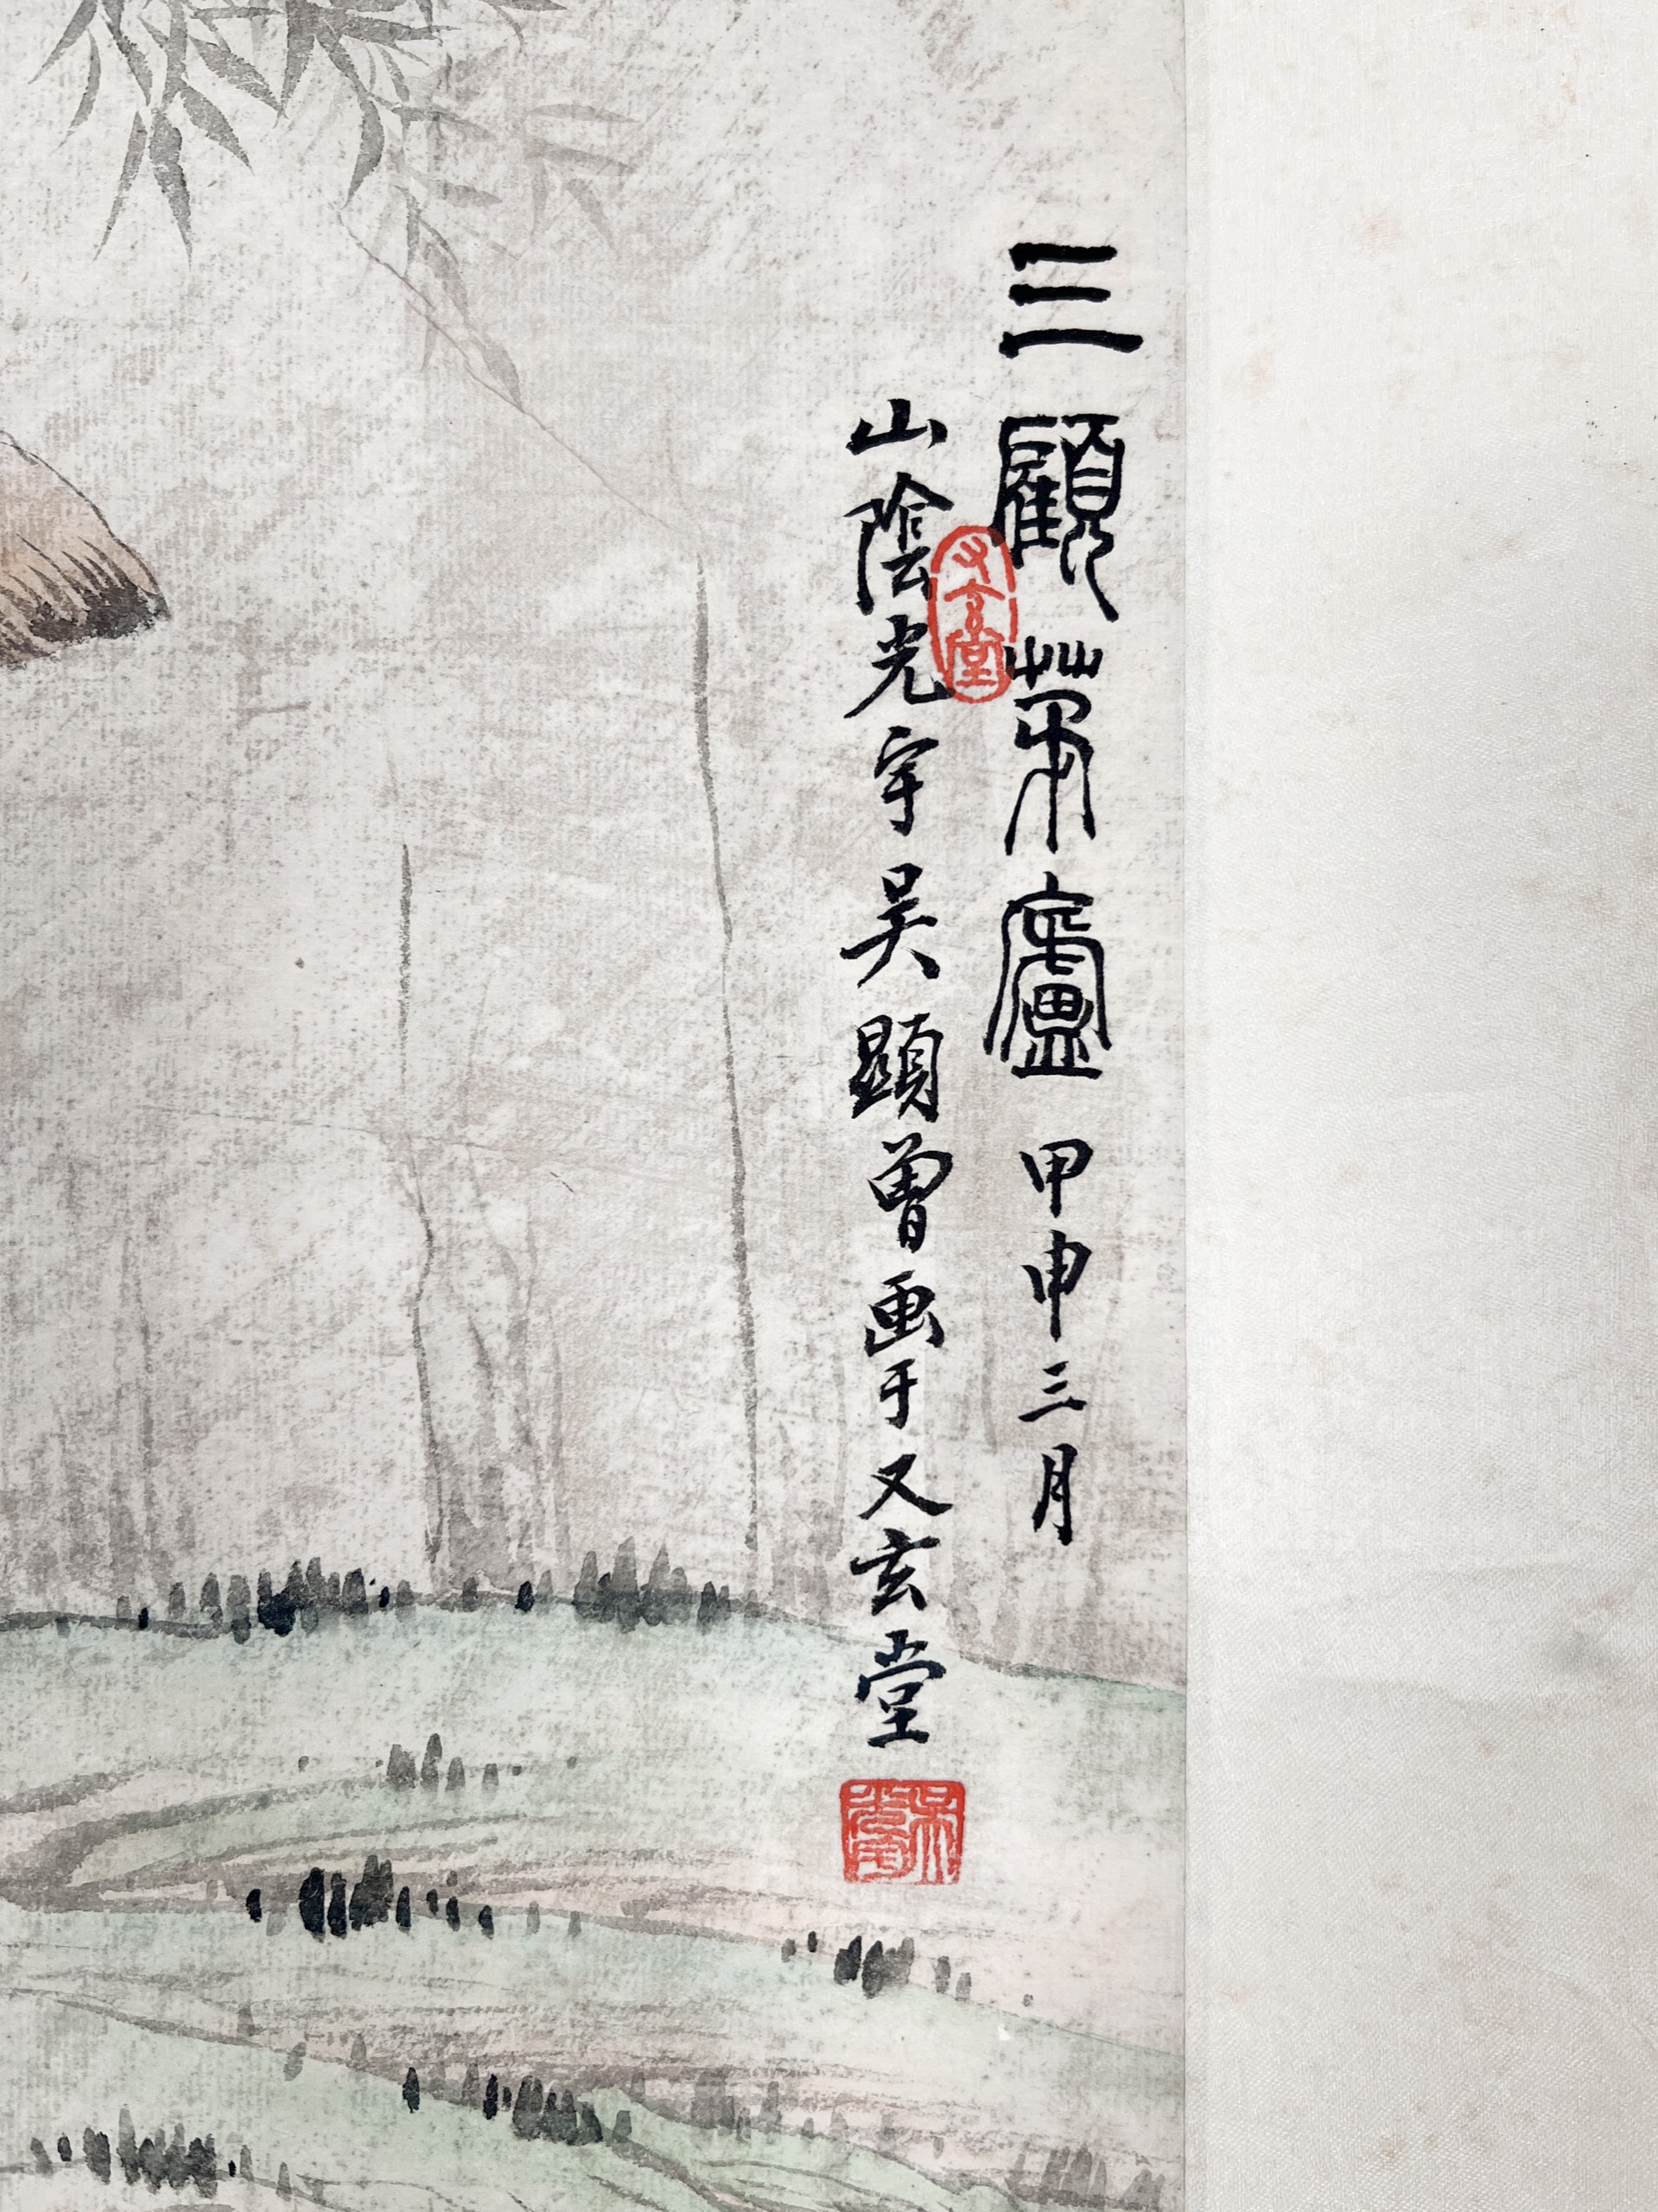 三顧茅廬 甲申三月
山陰光宇吴顯曾画于又玄堂
又玄堂
吴光宇